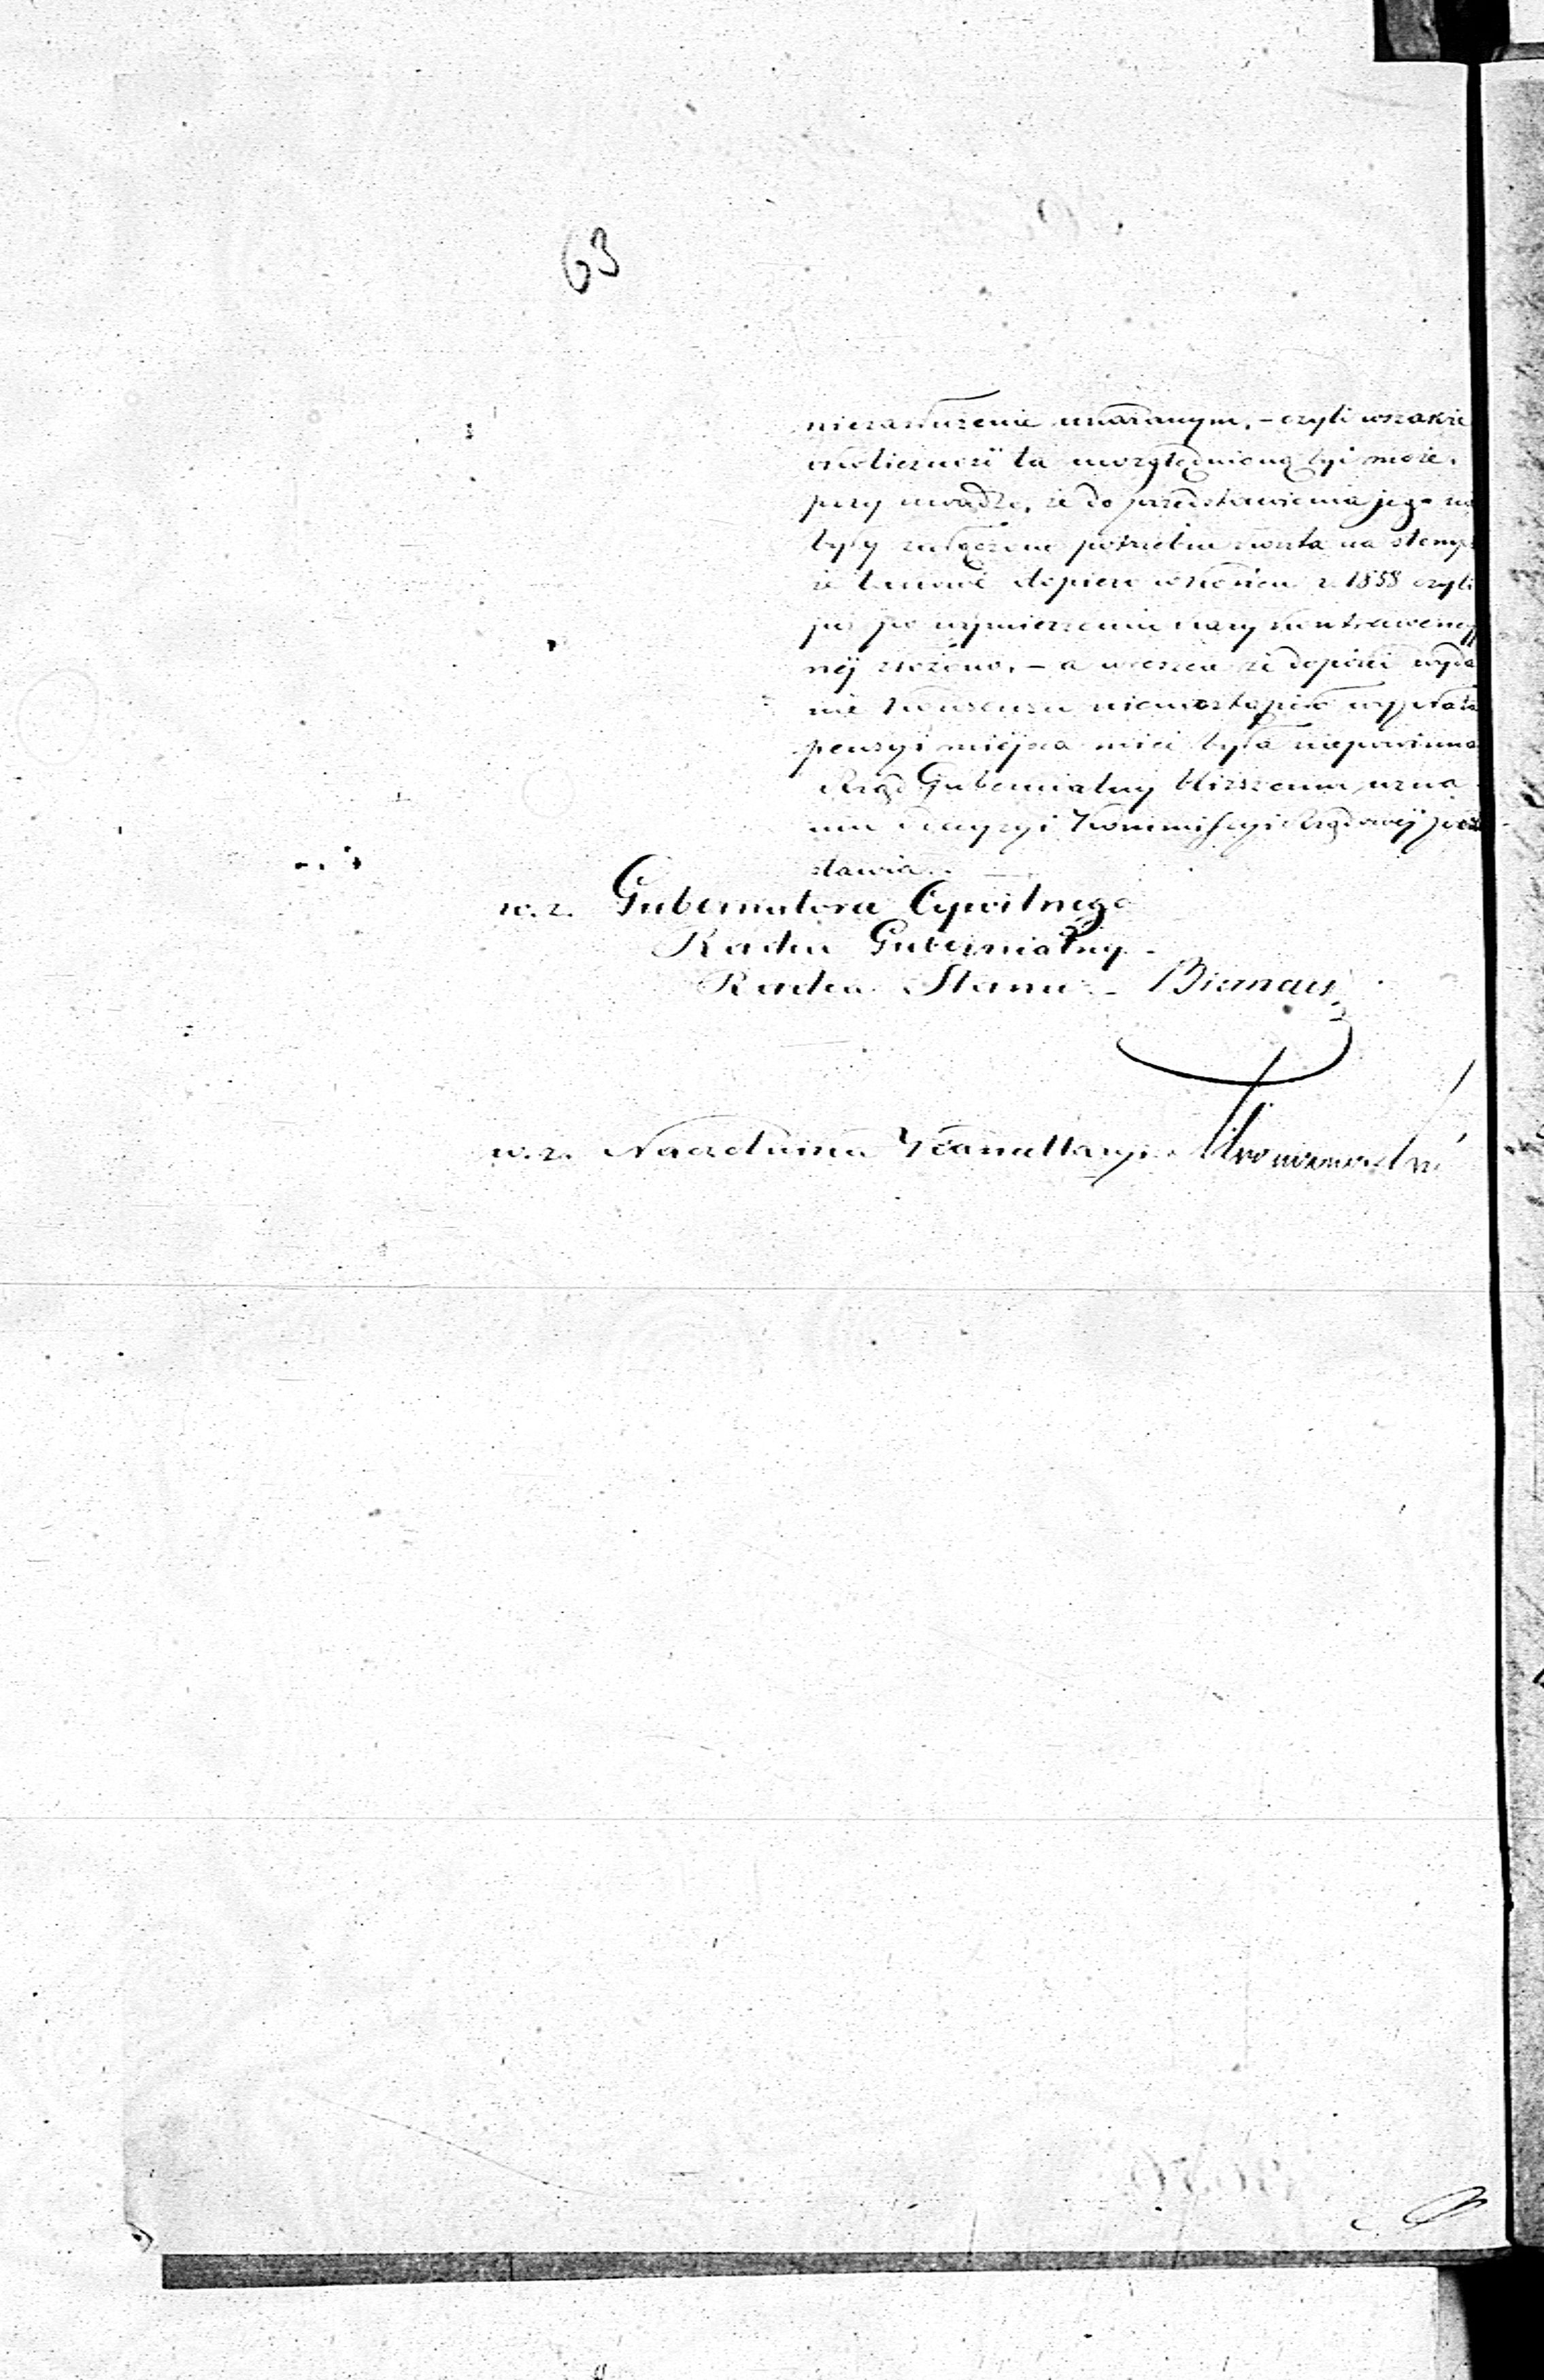 63
niezasłużenie ukaranym, – czyli wszakże
okoliczność ta uwzględnioną być może,
przy uwadze, że do przedstawienia jego
były załączone potrzebne na stemp
że takowe dopiero w końcu r. 1858 czyli
już po wymierzeniu kary kontrawency
néj złożono, – a wreszcie że dopóki wyda
nie Konsensu nienastąpiło wypłata
pensyi miejsca mieć była niepowinna
Rząd Gubernialny bliższemu uzna
niu decyzyi Kommissyi Rządowéj pozo
stawia.
w. z. Gubernatora Cywilnego
Radca Gubernialny
Radca Stanu Biernacki
w. z. Naczelnika Kancellaryi